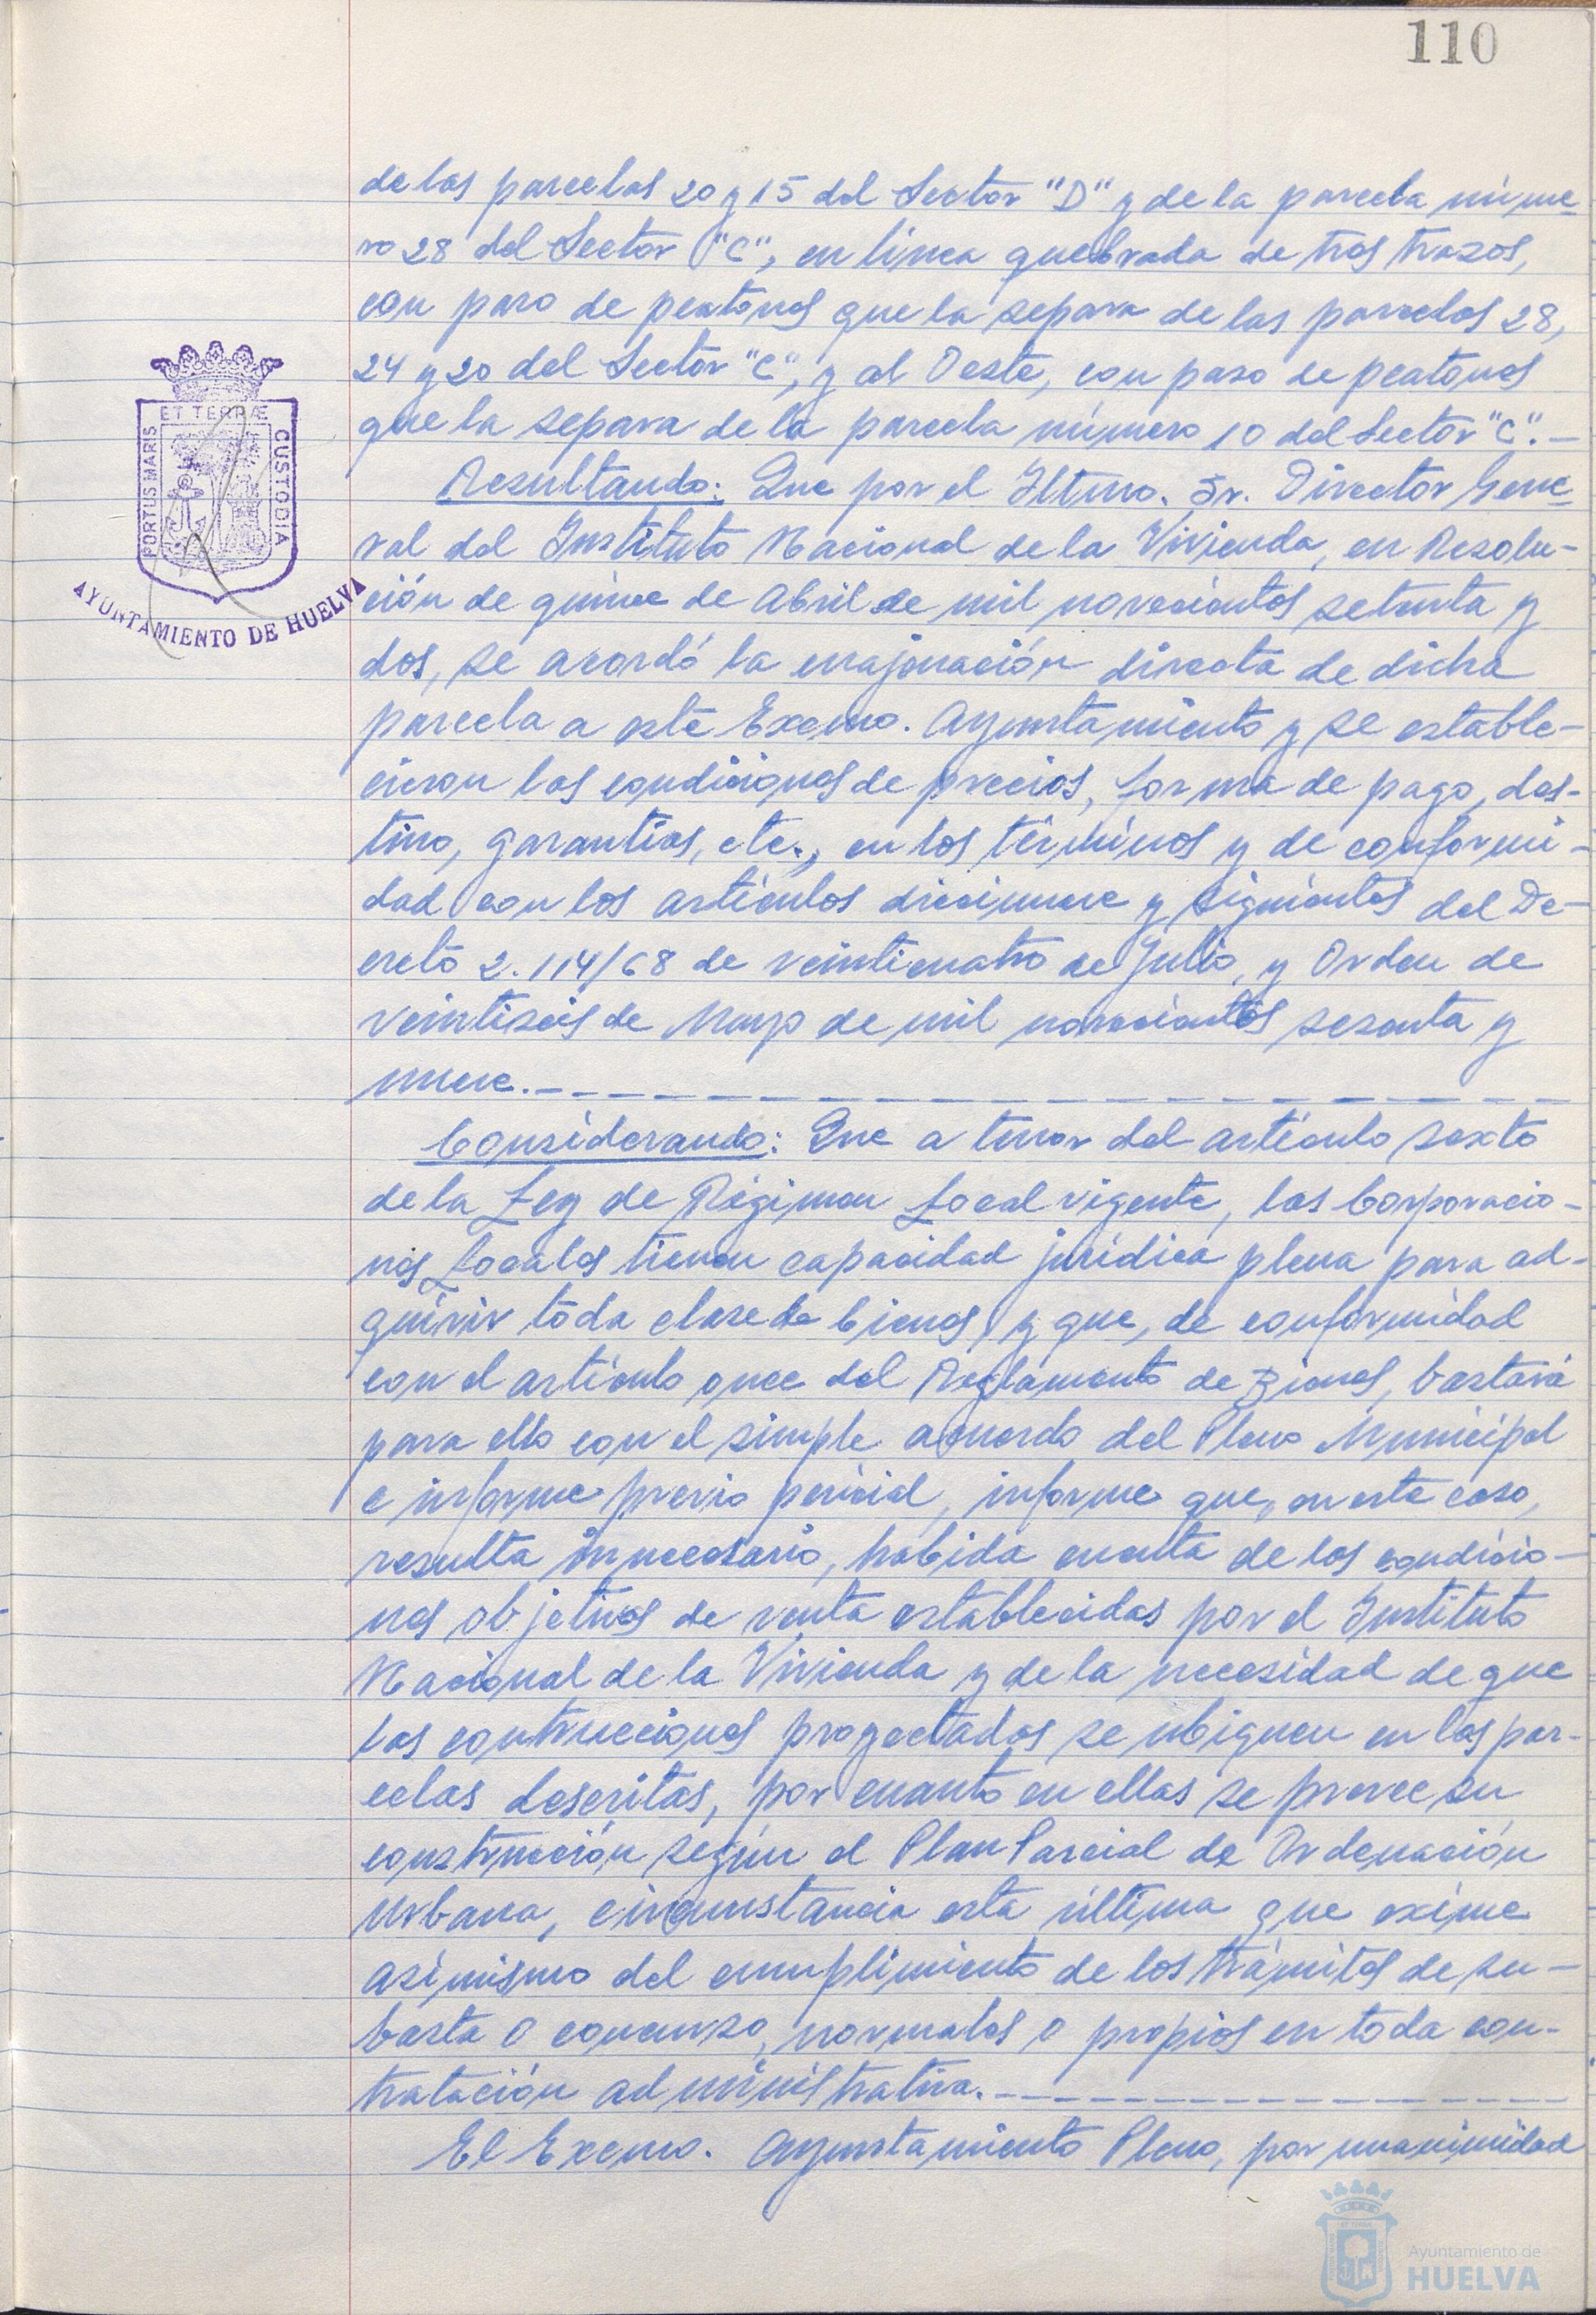 110
de las parcelas 20 y 15 del Sector "D" y de la parcela núme-
ro 28 del Sector "C", en línea quebrada de tres trazos,
con paso de peatones que la separa de las parcelas 28,
24 y 20 del Sector "C", y al Oeste, con paso de peatones
que la separa de la parcela número 10 del Sector "C".-
Resultando: Que por el Iltmo. Sr. Director Gene-
ral del Instituto Nacional de la Vivienda, en Resolu-
ción de quince de Abril de mil novecientos setenta y
dos, se acordó la enajenación directa de dicha
parcela a este Excmo. Ayuntamiento y se estable-
cieron las condiciones de precios, forma de pago, des-
tino, garantías, etc., en los términos y de conformi-
dad con los artículos diecinueve y siguientes del De-
creto 2.114/68 de veinticuatro de Julio, y Orden de
veintiseis de Mayo de mil novecientos sesenta y
nueve.-
Considerando: Que a tenor del artículo sexto
de la Ley de Régimen Local vigente, las Corporacio-
nes Locales tienen capacidad jurídica plena para ad-
quirir toda clase de bienes, y que, de conformidad
con el artículo once del Reglamento de Bienes, bastará
para ello con el simple acuerdo del Pleno Municipal
e informe previo pericial, informe que, en este caso,
resulta innecesario, habida cuenta de las condicio-
nes objetivas de venta establecidas por el Instituto
Nacional de la Vivienda y de la necesidad de que
las contrucciones proyectadas se ubiquen en las par-
celas descritas, por cuanto en ellas se provee su
construcción según el Plan Parcial de Ordenación
Urbana, circunstancia esta última que exime
asimismo del cumplimiento de los trámites de su-
basta o concurso, normales o propios en toda con-
tratación administrativa.-
El Excmo. Ayuntamiento Pleno, por unanimidad
PORTUS MARIS ET TERRÆ CUSTODIA
AYUNTAMIENTO DE HUELVA
Ayuntamiento de
HUELVA